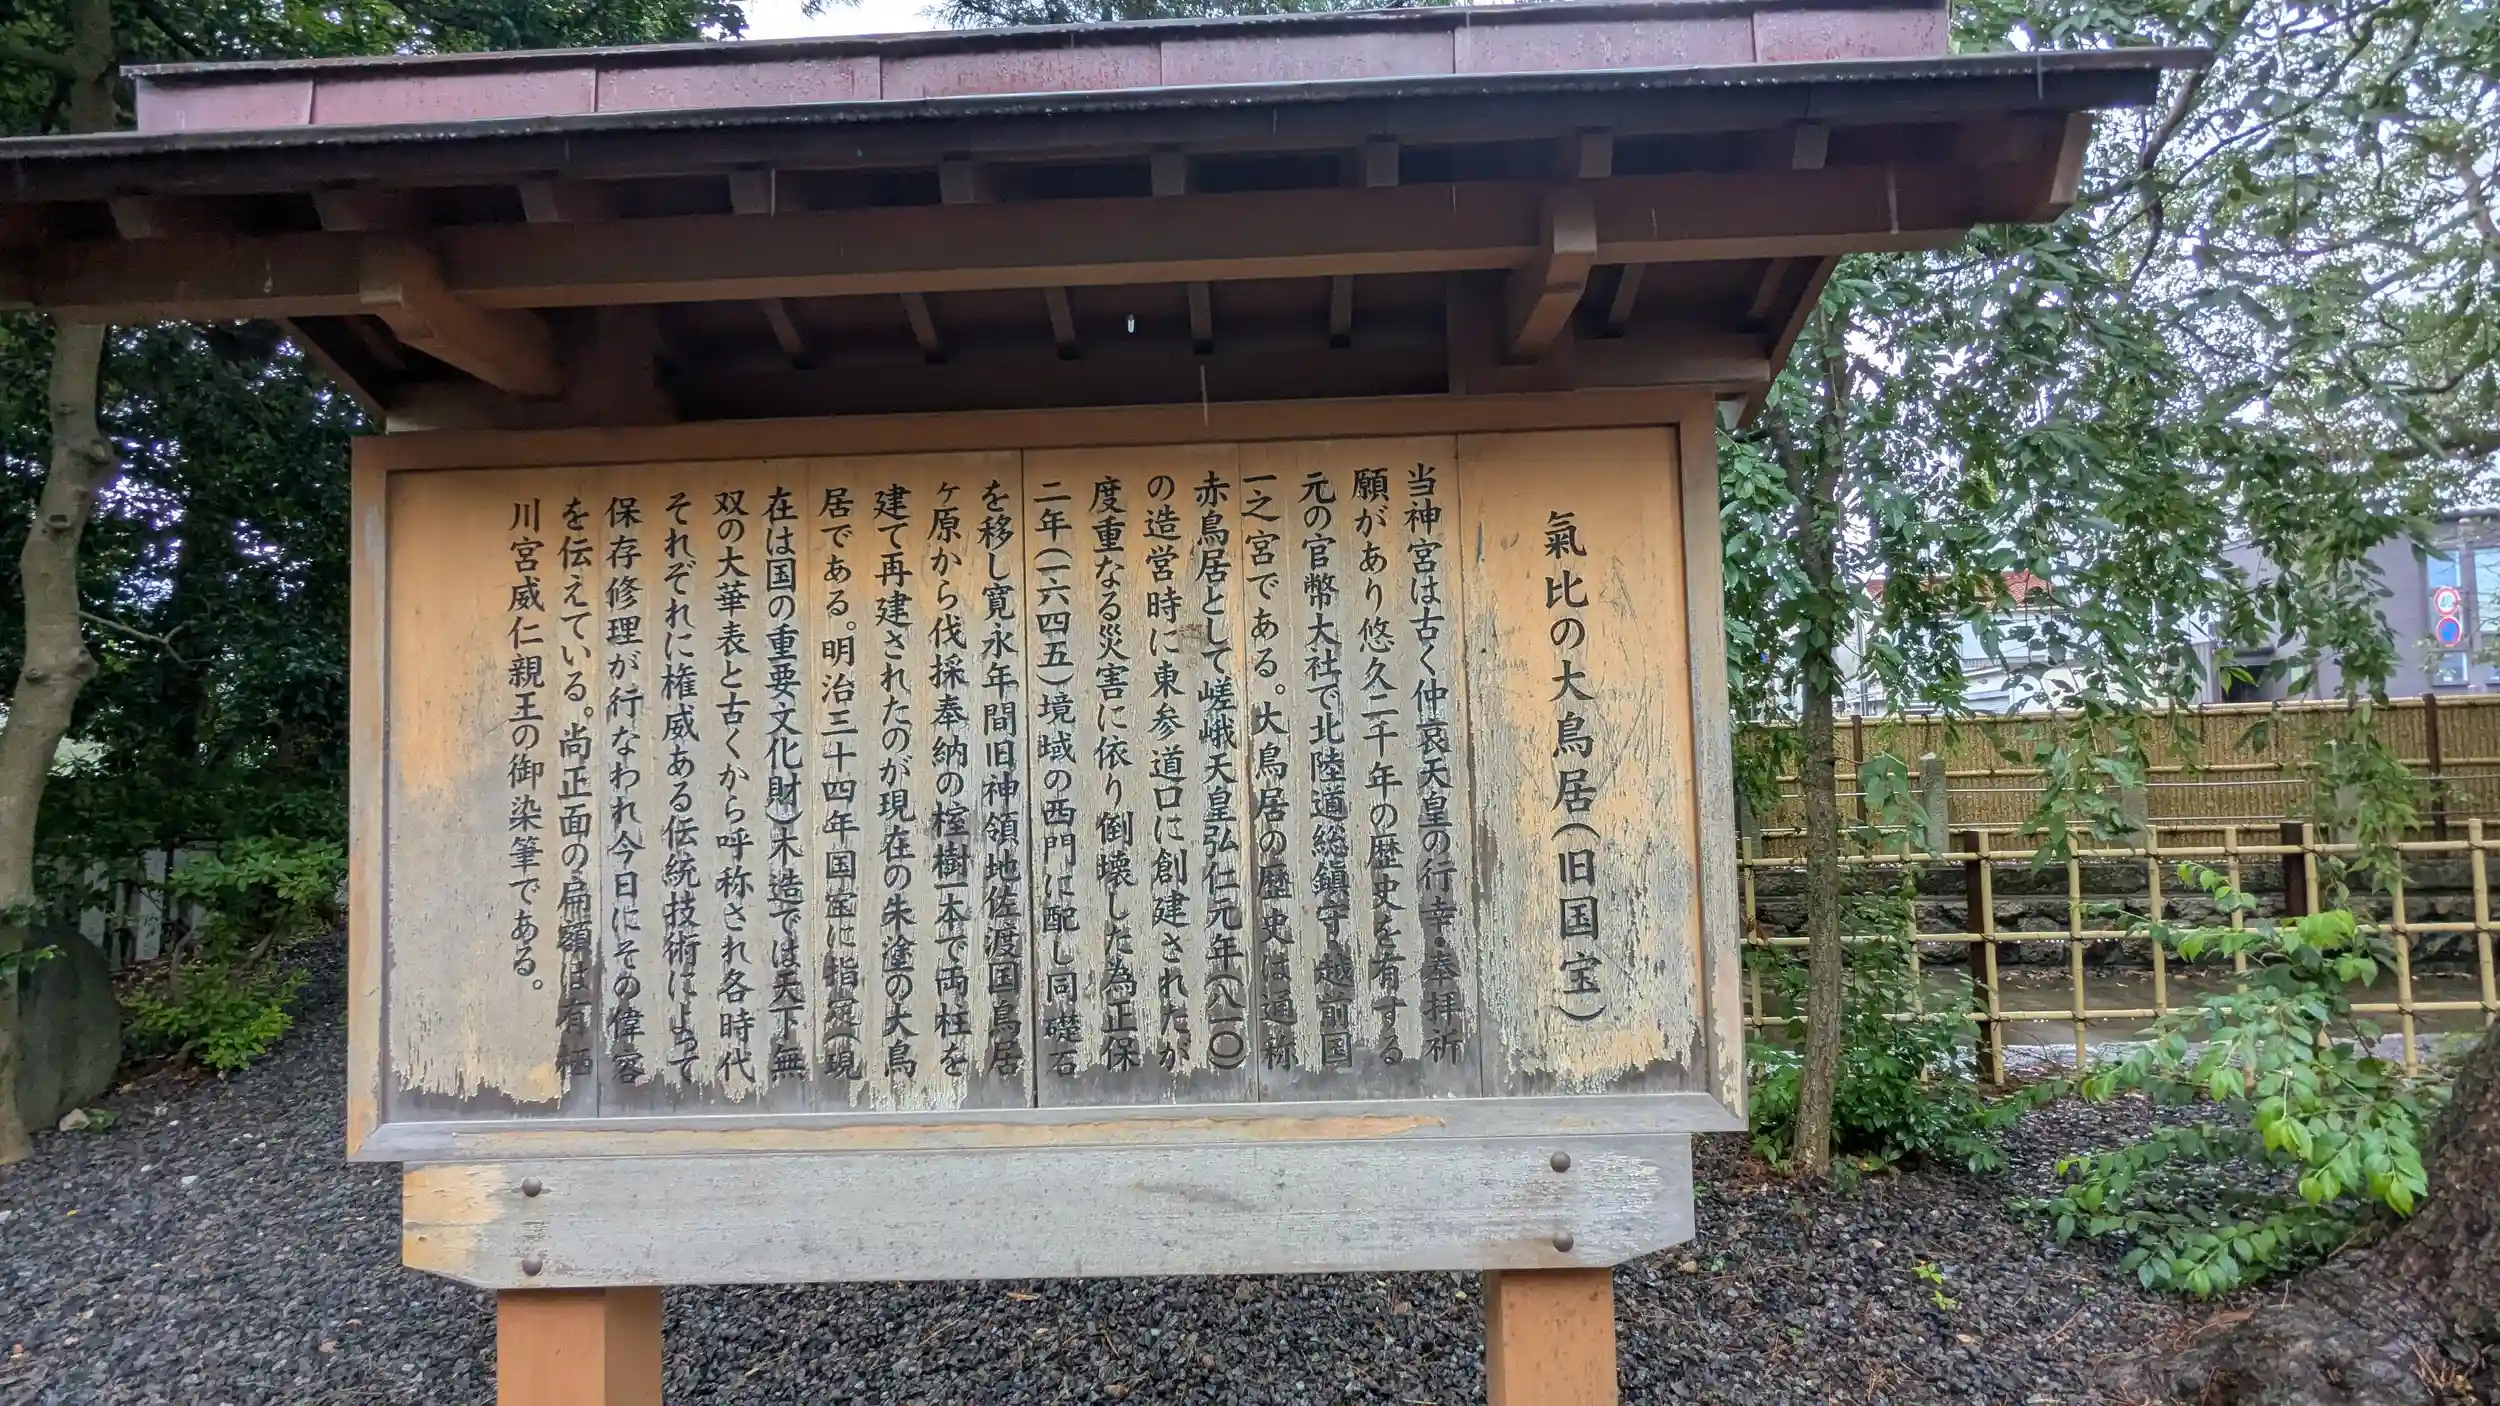 氣比の大鳥居(旧国宝)
当神宮は古く仲哀天皇の行幸・奉拝祈
願があり悠久二千年の歴史を有する
元の官幣大社で北陸道総鎮守・越前国
一之宮である。大鳥居の歴史は通称
赤鳥居として嵯峨天皇弘仁元年(八一〇)
の造営時に東参道口に創建されたが
度重なる災害に依り倒壊した為正保
二年(一六四五)境域の西門に配し同礎石
を移し寛永年間旧神領地佐渡国鳥居
ヶ原から伐採奉納の榁樹一本で両柱を
建て再建されたのが現在の朱塗の大鳥
居である。明治三十四年国宝に指定(現
在は国の重要文化財)木造では天下無
双の大華表と古くから呼称され各時代
それぞれに権威ある伝統技術によって
保存修理が行なわれ今日にその偉容
を伝えている。尚正面の扁額は有栖
川宮威仁親王の御染筆である。
40